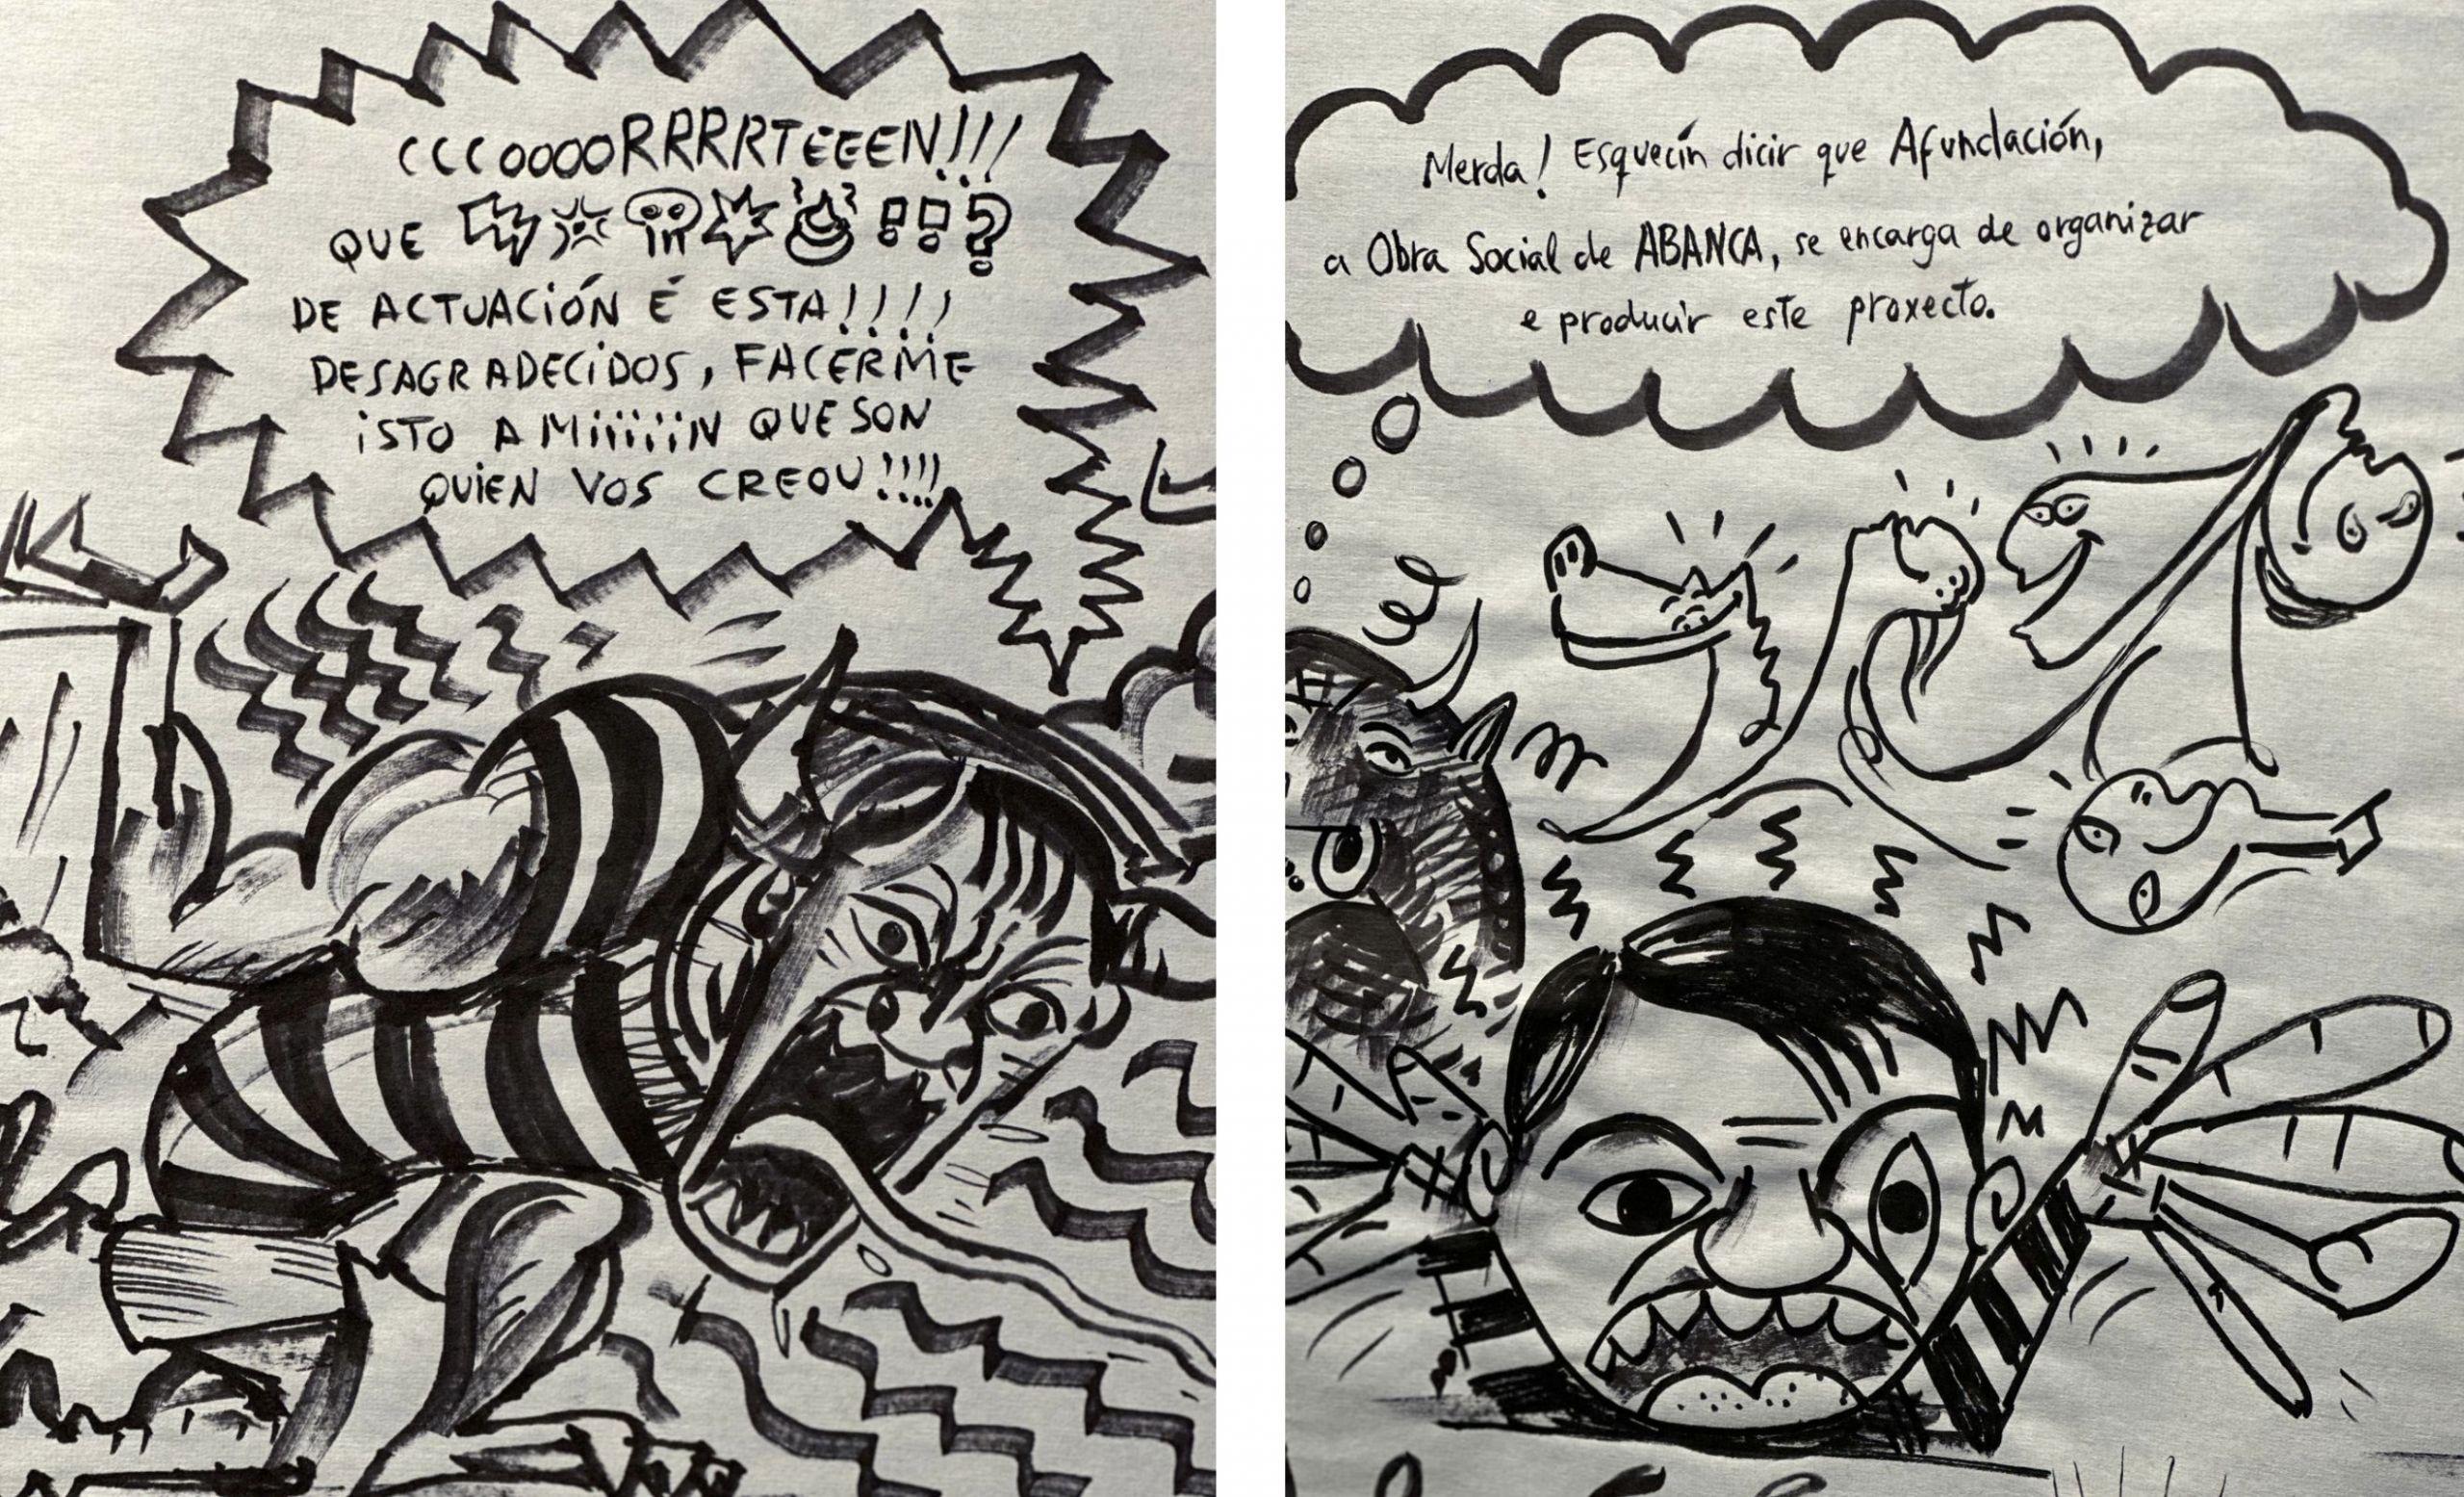 CCCOOOORRRRTEEEN!!!
QUE !!?
DE ACTUACIÓN É ESTA!!!!
DESAGRADECIDOS, FACERME
ISTO A MiiiiiiN QUE SON
QUIEN VOS CREOU!!!!
Merda! Esquecín dicir que Afundación,
a Obra Social de ABANCA, se encarga de organizar
e producir este proxecto.